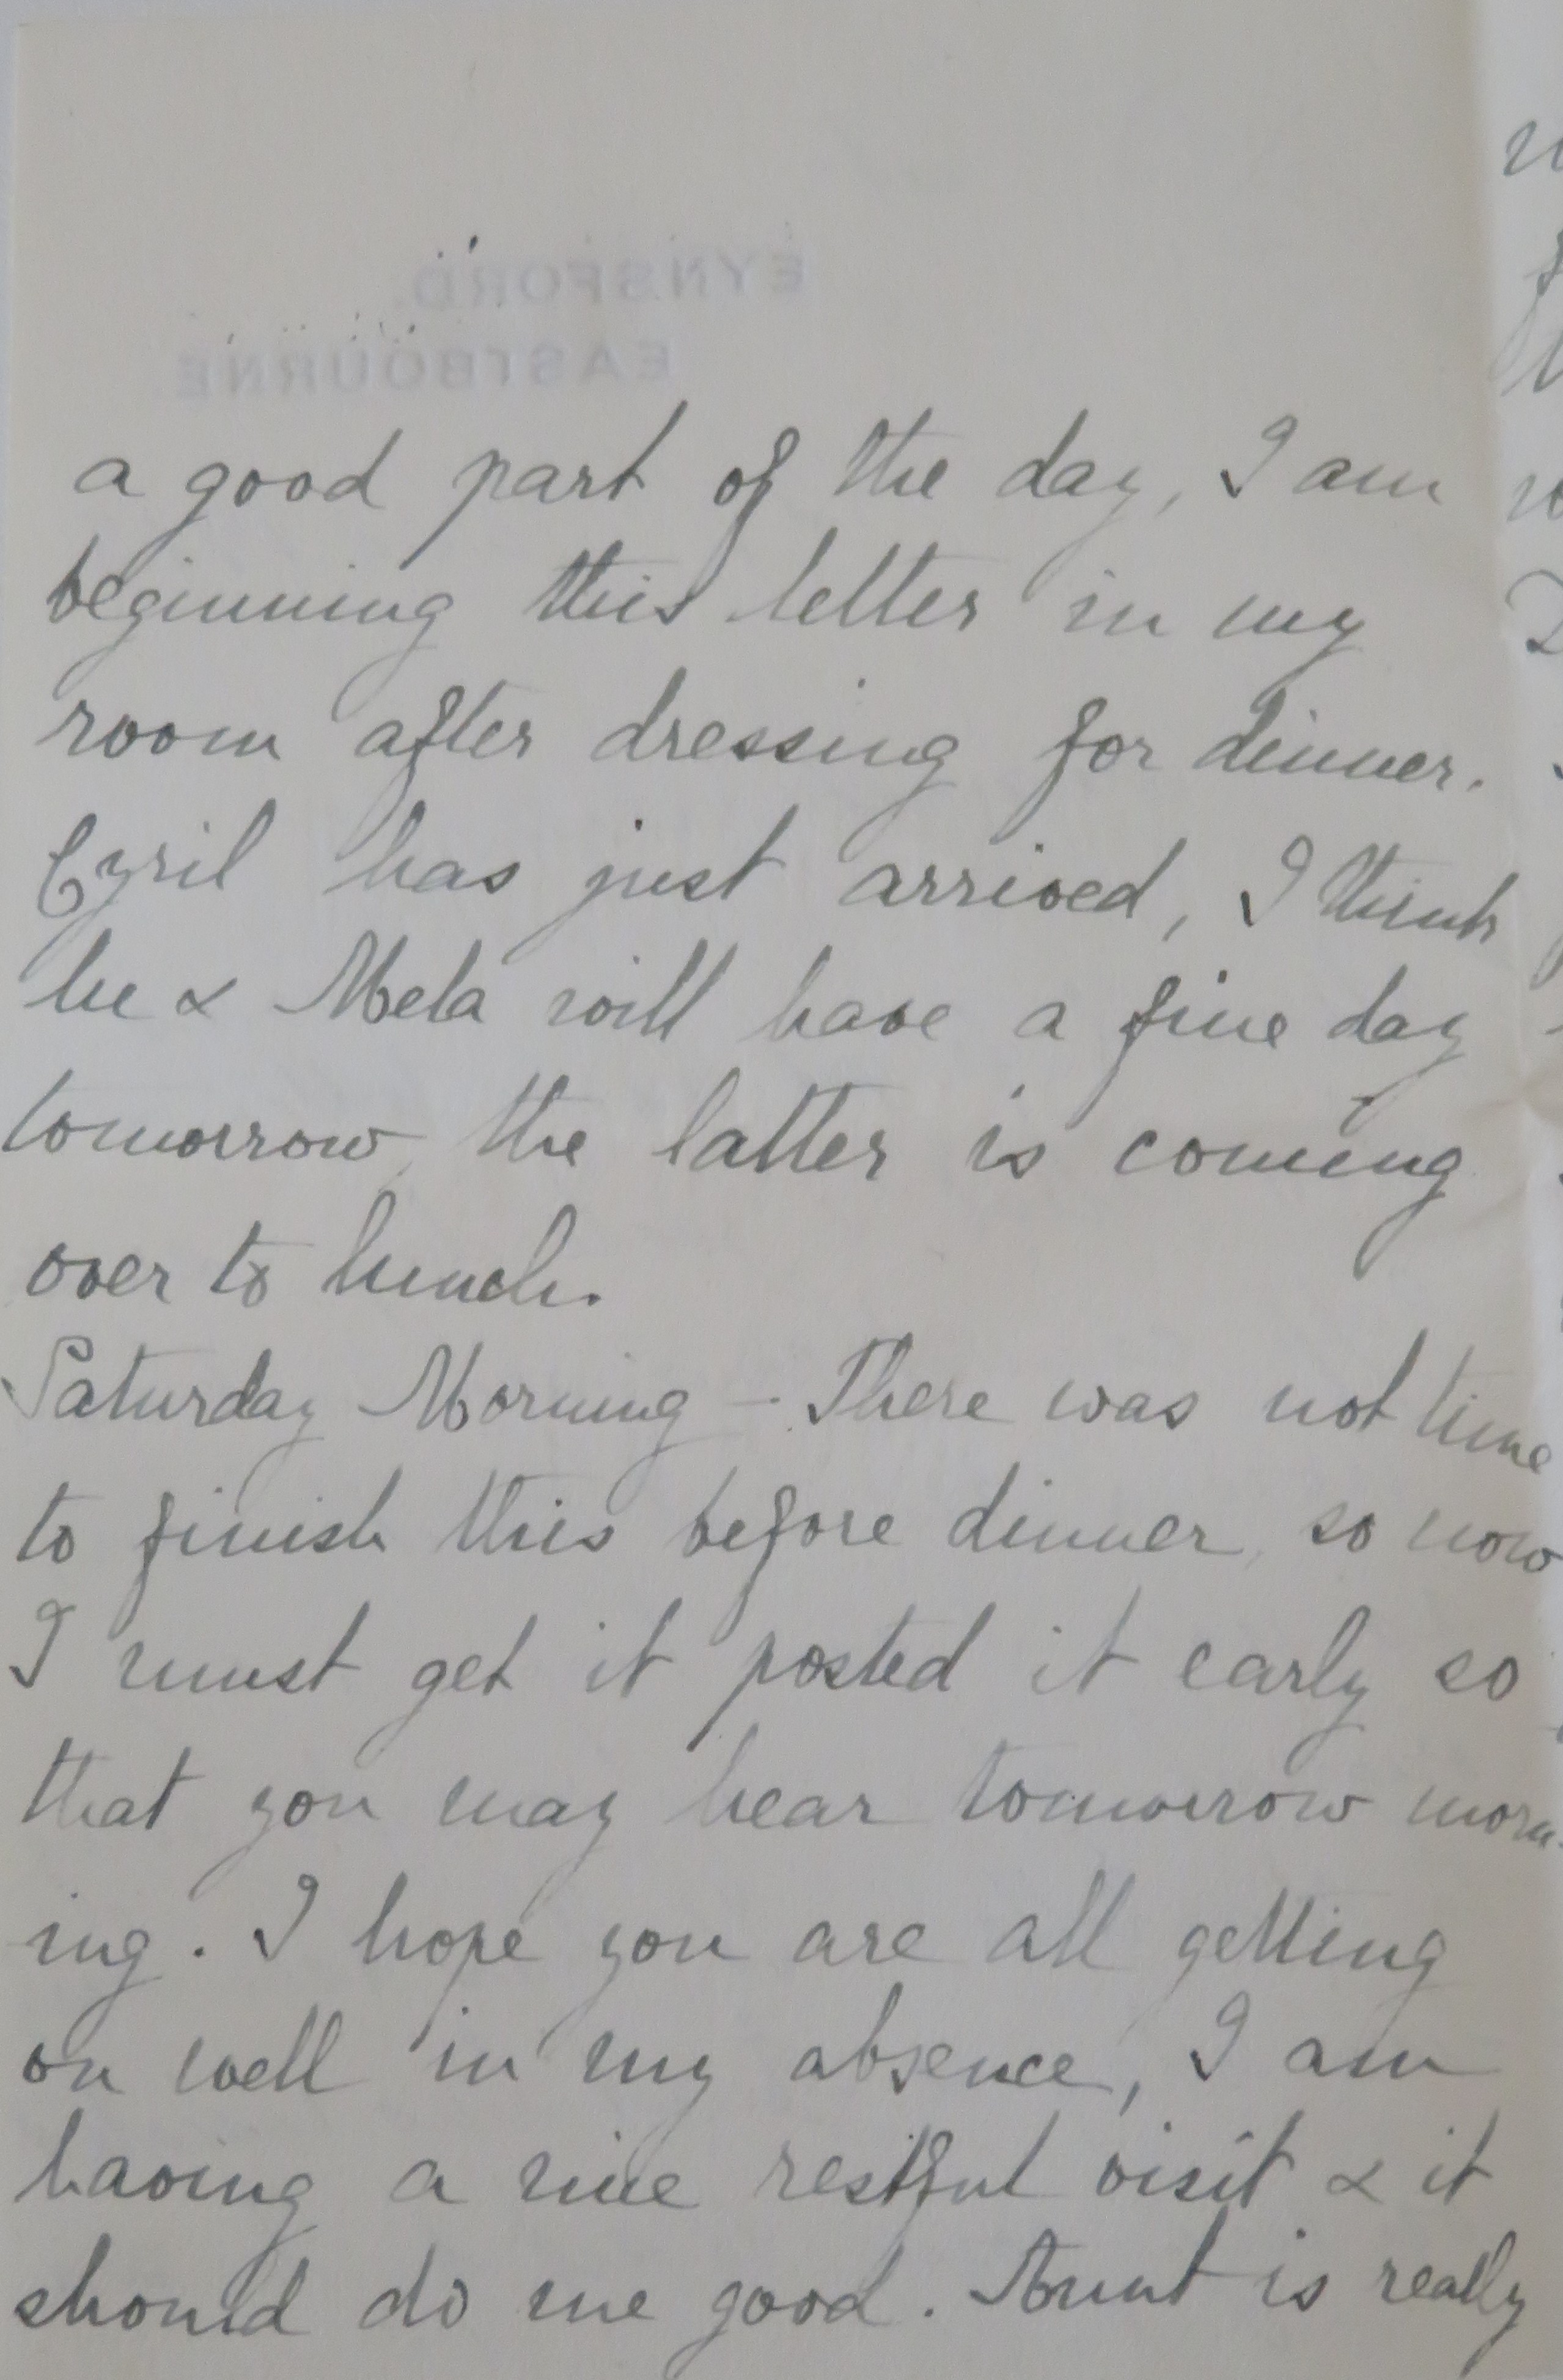 EYNSFORD.
EASTBOURNE.
a good part of the day, I am
beginning this letter in my
room after dressing for dinner.
Cyril has just arrived, I think
he & Mela will have a fine day
tomorrow, the latter is coming
over to lunch.
Saturday Morning - There was not time
to finish this before dinner, so now
I must get it posted it early so
that you may hear tomorrow morn-
ing. I hope you are all getting
on well in my absence, I am
having a nice restful visit & it
should do me good. Aunt is really